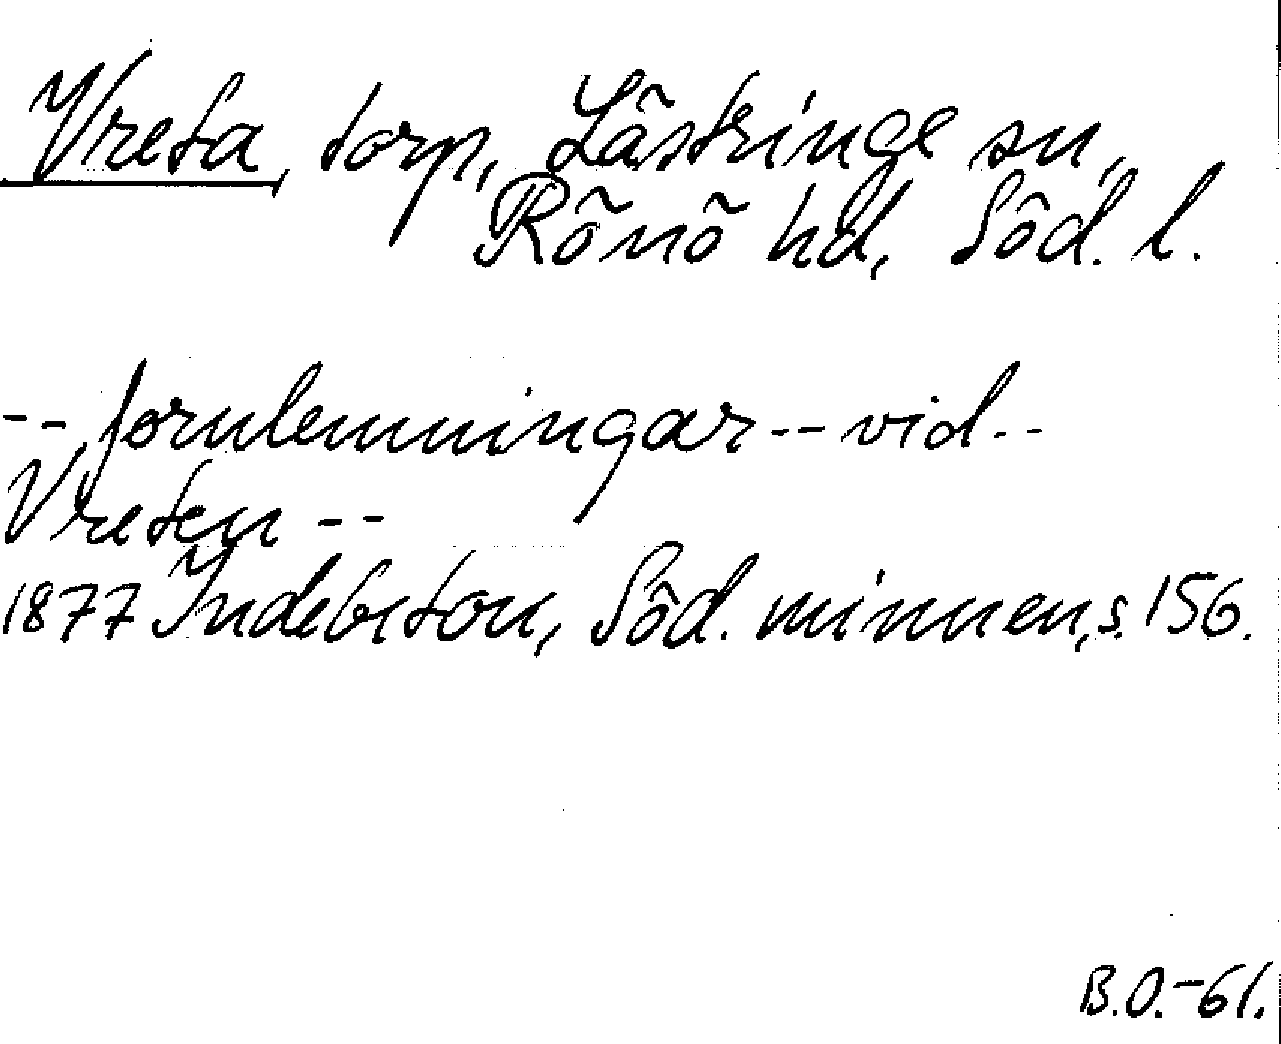 Vreta, torp, Lästringe sn,
Rönö hd, Söd. l.
-- fornlemningar -- vid --
Vreten --
1877 Indebetou, Söd. minnen, s. 156.
B.O.-61.